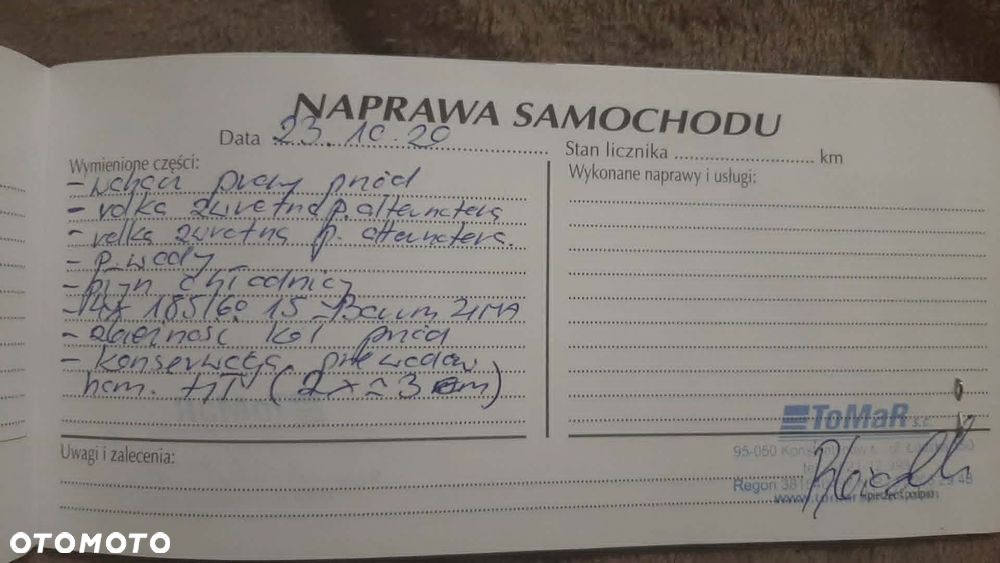 NAPRAWA SAMOCHODU
Data 23.10.20
Stan licznika km
Wymienione części:
- wahacz prawy przód
- rolka zwrotna p. alternatora
- rolka zwrotna p. alternatora.
- p. wody
- płyn chłodniczy
- 4x 185/60 15 Barum ZIMA
- zbieżność kół przód
- konserwacja przewodów
ham. (2x ≈ 3 m)
Wykonane naprawy i usługi:
Uwagi i zalecenia:
ToMaR s.c.
95-050
Regon
www.
OTOMOTO